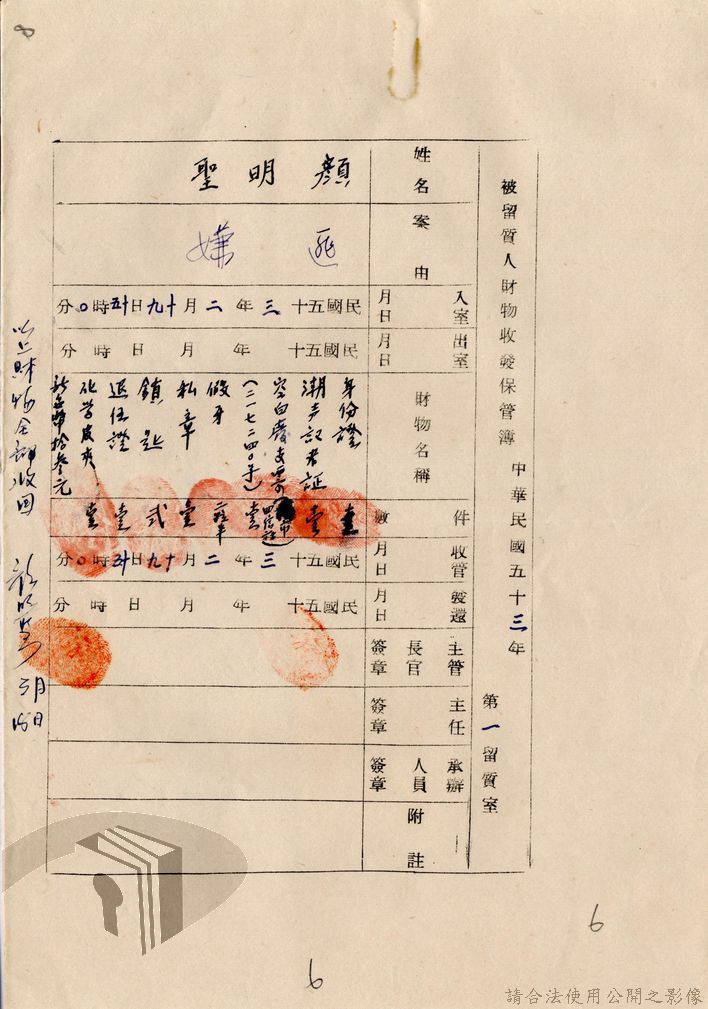 8
被留質人財物收發保管簿 中華民國五十三年 第一留質室
姓名
顏明聖
案由
匪嫌
入室月日
民國五十三年二月十九日十五時〇分
出室月日
民國五十 年 月 日 時 分
財物名稱
身份證
潮声記者証
空白廢支票
(二一七二四〇号)
假牙
私章
鎖匙
退伍證
化学皮夾
新台幣拾叁元
件數
壹
壹
壹
壹
弍
壹
壹
收管月日
民國五十三年二月十九日十五時〇分
發還月日
民國五十 年 月 日 時 分
主管長官簽章
主任簽章
承辦人員簽章
附註
以上財物全部收回 顏明聖
6
6
請合法使用公開之影像